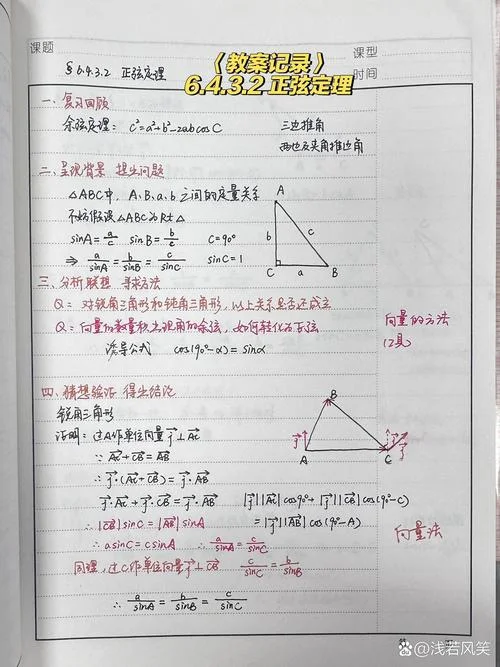 课题
课型
时间
《教案记录》
6.4.3.2 正弦定理
§6.4.3.2 正弦定理
一、复习回顾
余弦定理：c²=a²+b²-2abcosC
三边推角
两边及夹角推边角
二、呈现背景 提出问题
△ABC中，A、B、a、b之间的定量关系
不妨假设△ABC为Rt△
sinA=a/c sinB=b/c C=90°
⇒ a/sinA=b/sinB=c/sinC sinC=1
A
b
c
C
a
B
三、分析联想 寻求方法
Q：对锐角三角形和钝角三角形，以上关系是否还成立
Q：向量的数量积出现角的余弦，如何转化为正弦
诱导公式 cos(90°-α)=sinα
向量的方法
工具
四、猜想验证 得出结论
锐角三角形
证明：过A作单位向量j⃗⊥AC⃗
∵ AC⃗+CB⃗=AB⃗
∴ j⃗·(AC⃗+CB⃗)=j⃗·AB⃗
j⃗·AC⃗+j⃗·CB⃗=j⃗·AB⃗ |j⃗||AC⃗|cos90°+|j⃗||CB⃗|cos(90°-C)
∴|CB⃗|sinC=|AB⃗|sinA =|j⃗||AB⃗|cos(90°-A)
∴asinC=csinA ∴a/sinA=c/sinC
同理，过C作单位向量j⃗⊥CB⃗ c/sinC=b/sinB
∴ a/sinA=b/sinB=c/sinC
B
j⃗
A
C
j⃗
j⃗
向量法
知乎 @浅若风笑